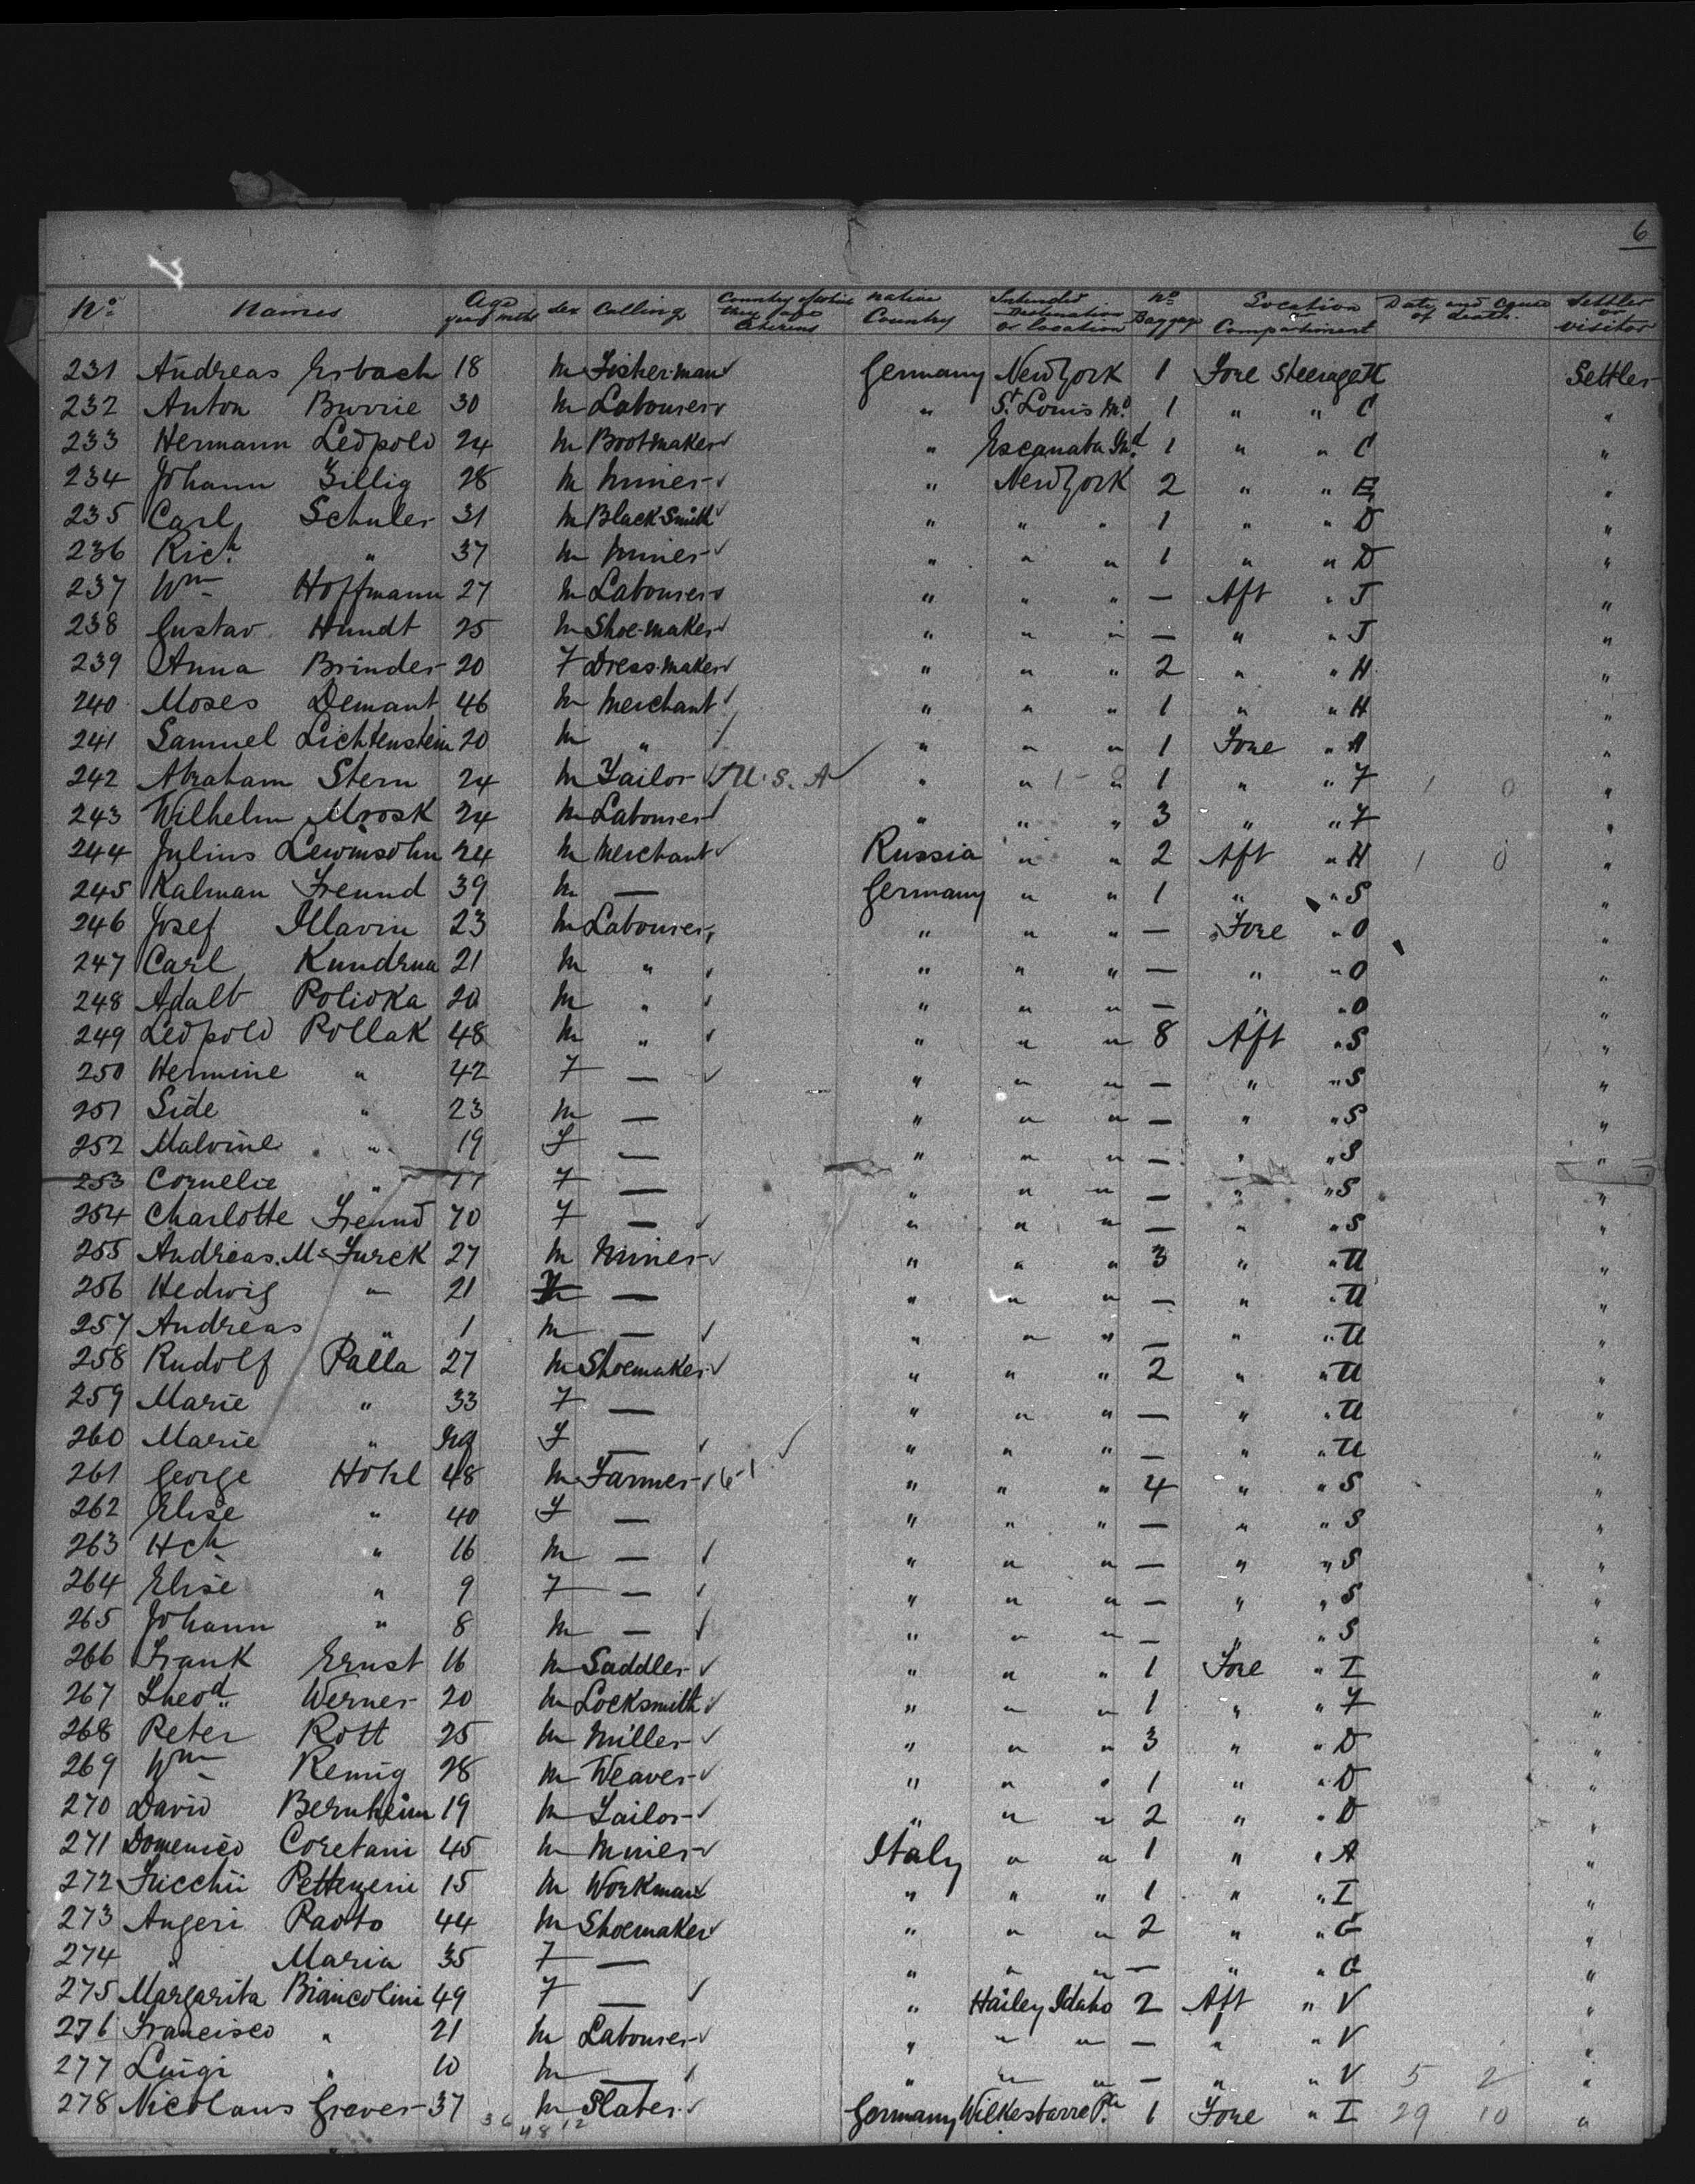 6
No. Names Age years mths Sex Calling Country of which they are Citizens Native Country Intended Destination or location No. Baggage Location or Compartment Date and cause of death. Settler or visitor
231 Andreas Erbach 18 M Fisherman Germany New York 1 Fore Steerage Settler
232 Anton Burrie 30 M Labourer " St. Louis Mo. 1 " " C "
233 Hermann Leopold 24 M Bootmaker " Escanaba 1 " " C "
234 Johann Zillig 28 M Miner " New York 2 " " E "
235 Carl Schuler 31 M Black Smith " " " 1 " " D "
236 Rich. " 37 M Miner " " " 1 " " D "
237 Wm Hoffmann 27 M Labourer " " " — Aft " J "
238 Gustav Hundt 25 M Shoe-maker " " " — " " J "
239 Anna Brinder 20 F Dress-maker " " " 2 " " H "
240 Moses Demant 46 M Merchant " " " 1 " " H "
241 Samuel Lichtenstein 20 M " " " " 1 Fore " A "
242 Abraham Stern 24 M Tailor U.S.A " " " 1 " " F 1 0 "
243 Wilhelm Mrosk 24 M Labourer " " " 3 " " F "
244 Julius Lewinsohn 24 M Merchant Russia " " 2 Aft " H 1 0 "
245 Kalman Freund 39 M — Germany " " 1 " " S "
246 Josef Illavin 23 M Labourer " " " — Fore " O "
247 Carl Kundrua 21 M " " " " — " " O "
248 Adalb Polioka 20 M " " " " — " " O "
249 Leopold Pollak 48 M " " " " 8 Aft " S "
250 Hermine " 42 F — " " " — " " S "
251 Side " 23 M — " " " — " " S "
252 Malvine " 19 F — " " " — " " S "
253 Cornelie " F — " " " — " " S "
254 Charlotte Freund 70 F — " " " — " " S "
255 Andreas. Mc Furck 27 M Miner " " " 3 " " U "
256 Hedwig " 21 — " " " — " " U "
257 Andreas " 1 M — " " " — " " U "
258 Rudolf Palla 27 M Shoemaker " " " 2 " " U "
259 Marie " 33 F — " " " — " " U "
260 Marie " F — " " " — " " U "
261 George Hohl 48 M Farmer 6-1 " " " 4 " " S "
262 Elise " 40 F — " " " — " " S "
263 Hch " 16 M — " " " — " " S "
264 Elise " 9 F — " " " — " " S "
265 Johann " 8 M — " " " — " " S "
266 Frank Ernst 16 M Saddler " " " 1 Fore " I "
267 Theod. Werner 20 M Locksmith " " " 1 " " F "
268 Peter Rott 25 M Miller " " " 3 " " D "
269 Wm Remig 28 M Weaver " " " 1 " " D "
270 David Bernheim 19 M Tailor " " " 2 " " D "
271 Domenico Coretani 45 M Miner Italy " " 1 " " A "
272 15 M Workman " " " 1 " " I "
273 Angeri Paolo 44 M Shoemaker " " " 2 " " G "
274 " Maria 35 F — " " " — " " G "
275 Margarita Biancolini 49 F — " Hailey Idaho 2 Aft " V "
276 Francisco " 21 M Labourer " " " — " " V "
277 Luigi " 10 M — " " " — " " V 5 2 "
278 Nicolaus Grever 37 M Slater Germany Wilkesbarre Pa 1 Fore " I 29 10 "
36 48 12